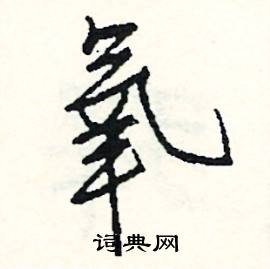 氧
词典网